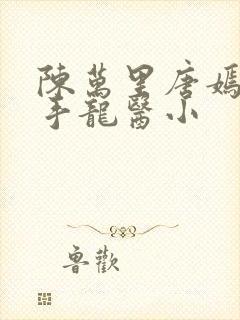 陳萬里唐嫣
手龍醫小
魯歡